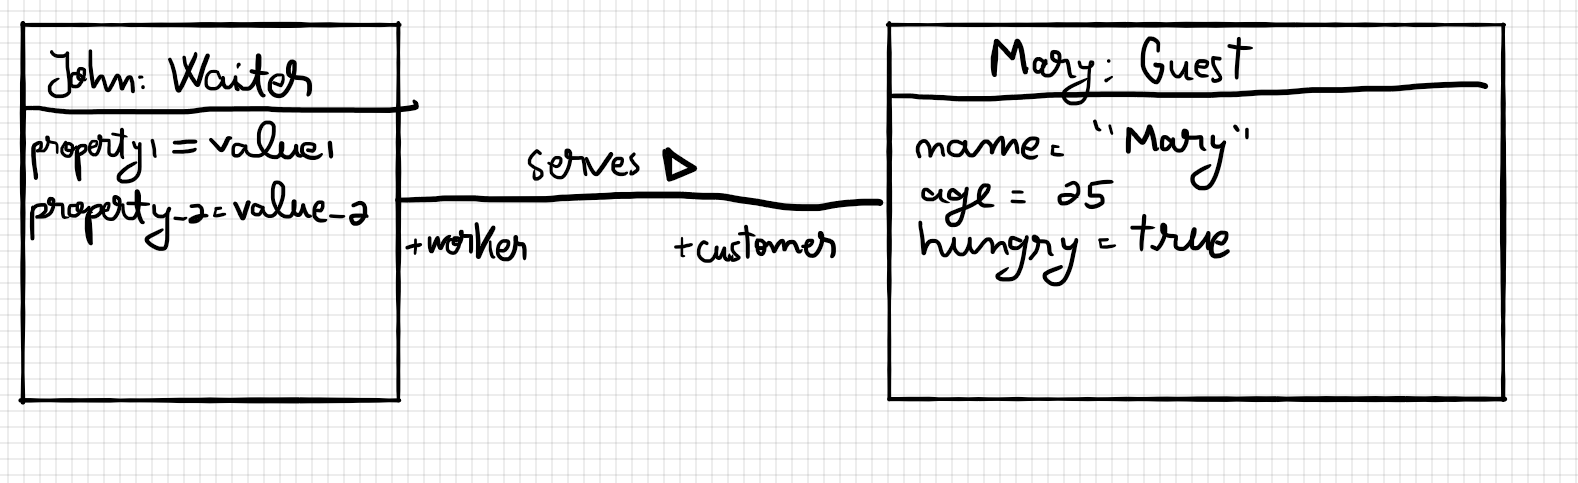 John: Waiter
property1 = value1
property_2 = value_2
serves ▷
+worker
+customer
Mary: Guest
name = "Mary"
age = 25
hungry = true